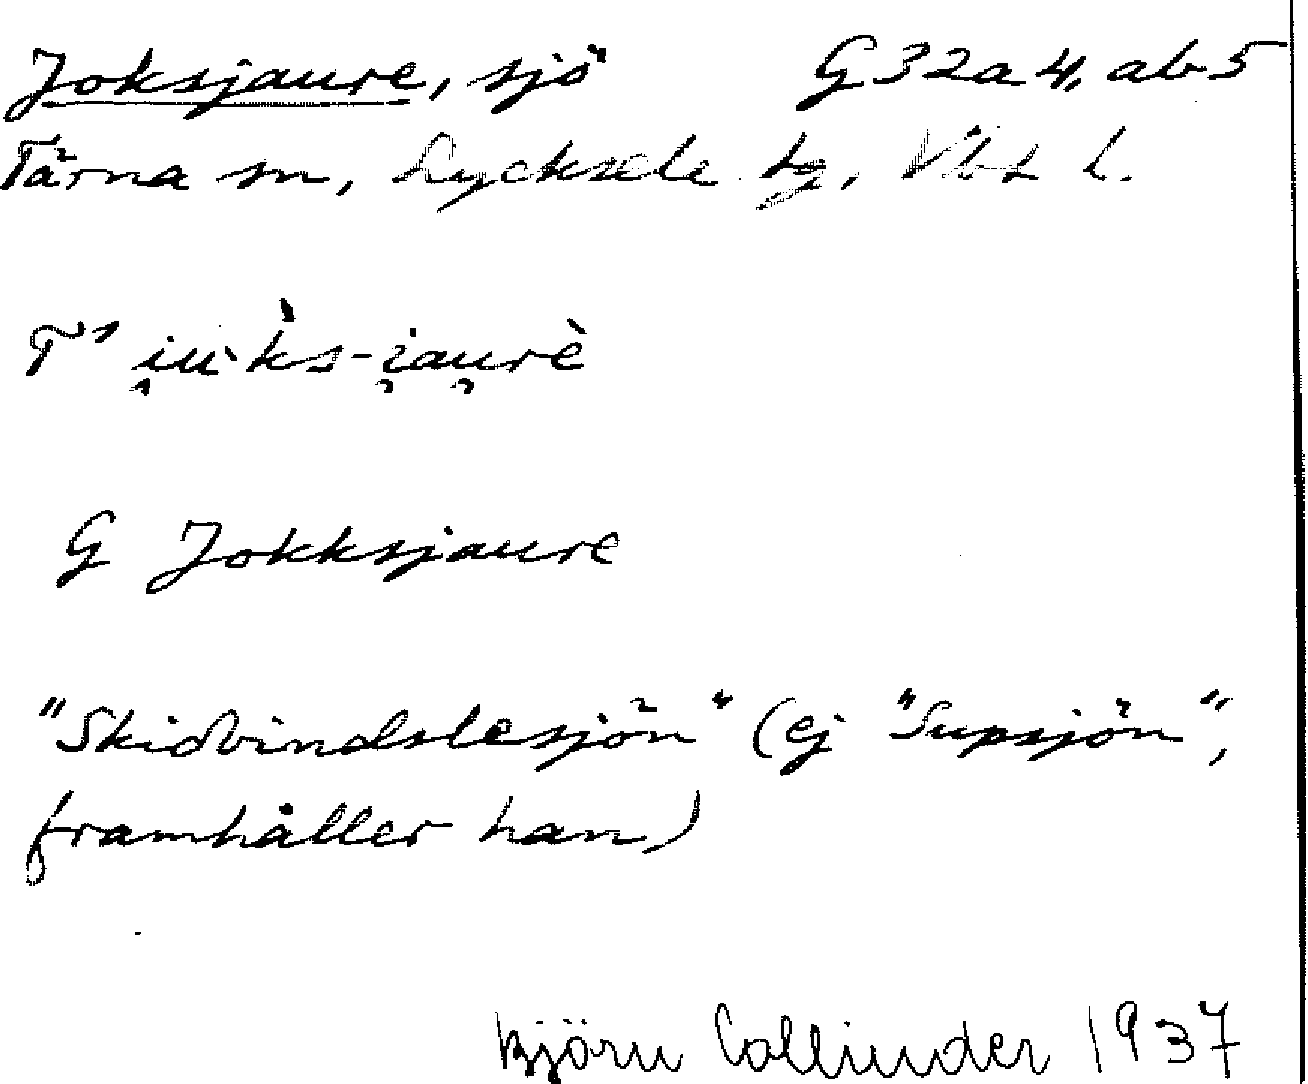 Joksjaure, sjö G32a4, ab5
Tärna sn, Lycksele tg, Vbt l.
T' i̯uˋk̀s-i̯au̯rè
G Jokksjaure
"Skidbindslesjön" (ej "Supsjön",
framhåller han)
Björn Collinder 1937